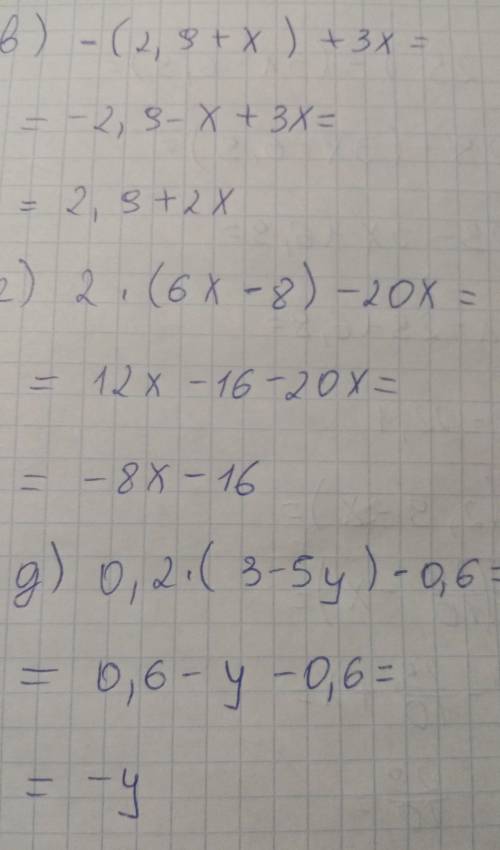 в) -(2,9+x)+3x=
= -2,9-x+3x=
= 2,9+2x
г) 2·(6x-8)-20x=
= 12x-16-20x=
= -8x-16
д) 0,2·(3-5y)-0,6=
= 0,6-y-0,6=
= -y